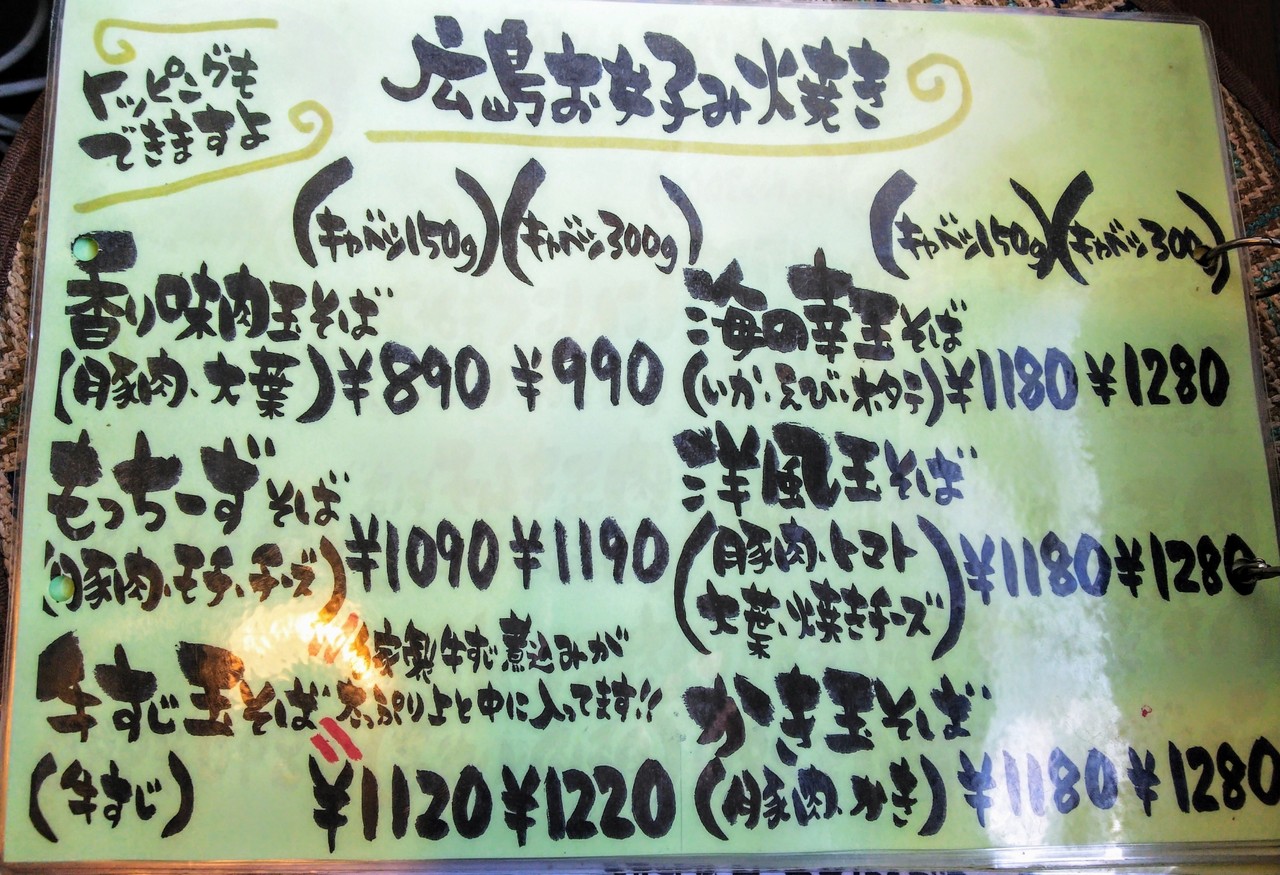 トッピングも
できますよ
広島お好み焼き
(キャベツ150g)(キャベツ300g)
香り味肉玉そば
(豚肉、大葉) ¥890 ¥990
もっちーずそば
(豚肉、モチ、チーズ) ¥1090 ¥1190
牛すじ玉そば
自家製牛すじ煮込みが
たっぷり上と中に入ってます!!
(牛すじ) ¥1120 ¥1220
(キャベツ150g)(キャベツ300g)
海の幸玉そば
(いか、えび、ホタテ) ¥1180 ¥1280
洋風玉そば
(豚肉、トマト
大葉、焼きチーズ) ¥1180 ¥1280
かき玉そば
(豚肉、かき) ¥1180 ¥1280